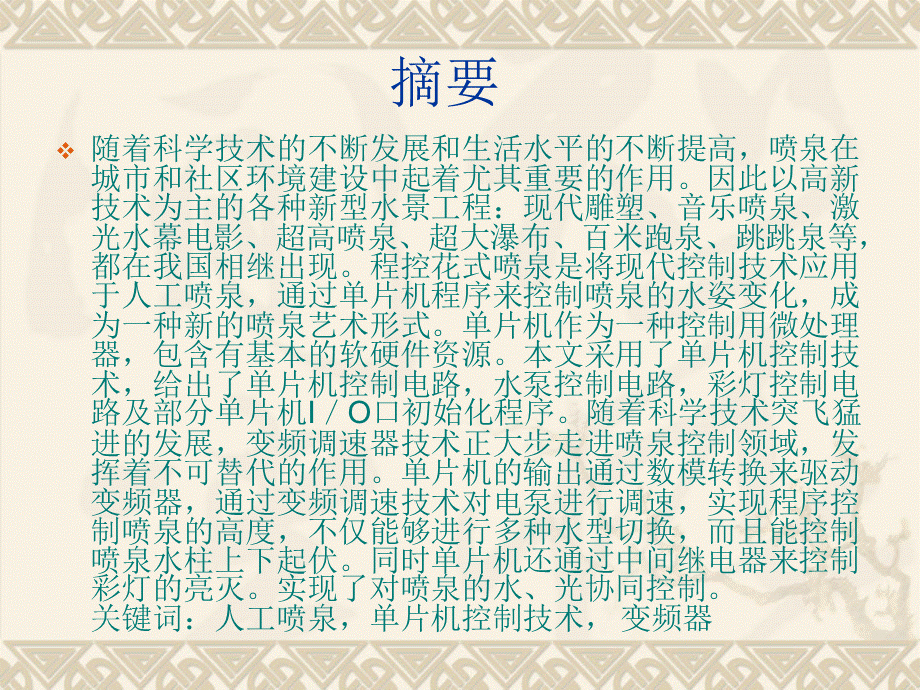 摘要
随着科学技术的不断发展和生活水平的不断提高，喷泉在
城市和社区环境建设中起着尤其重要的作用。因此以高新
技术为主的各种新型水景工程：现代雕塑、音乐喷泉、激
光水幕电影、超高喷泉、超大瀑布、百米跑泉、跳跳泉等，
都在我国相继出现。程控花式喷泉是将现代控制技术应用
于人工喷泉，通过单片机程序来控制喷泉的水姿变化，成
为一种新的喷泉艺术形式。单片机作为一种控制用微处理
器，包含有基本的软硬件资源。本文采用了单片机控制技
术，给出了单片机控制电路，水泵控制电路，彩灯控制电
路及部分单片机I／O口初始化程序。随着科学技术突飞猛
进的发展，变频调速器技术正大步走进喷泉控制领域，发
挥着不可替代的作用。单片机的输出通过数模转换来驱动
变频器，通过变频调速技术对电泵进行调速，实现程序控
制喷泉的高度，不仅能够进行多种水型切换，而且能控制
喷泉水柱上下起伏。同时单片机还通过中间继电器来控制
彩灯的亮灭。实现了对喷泉的水、光协同控制。
关键词：人工喷泉，单片机控制技术， 变频器